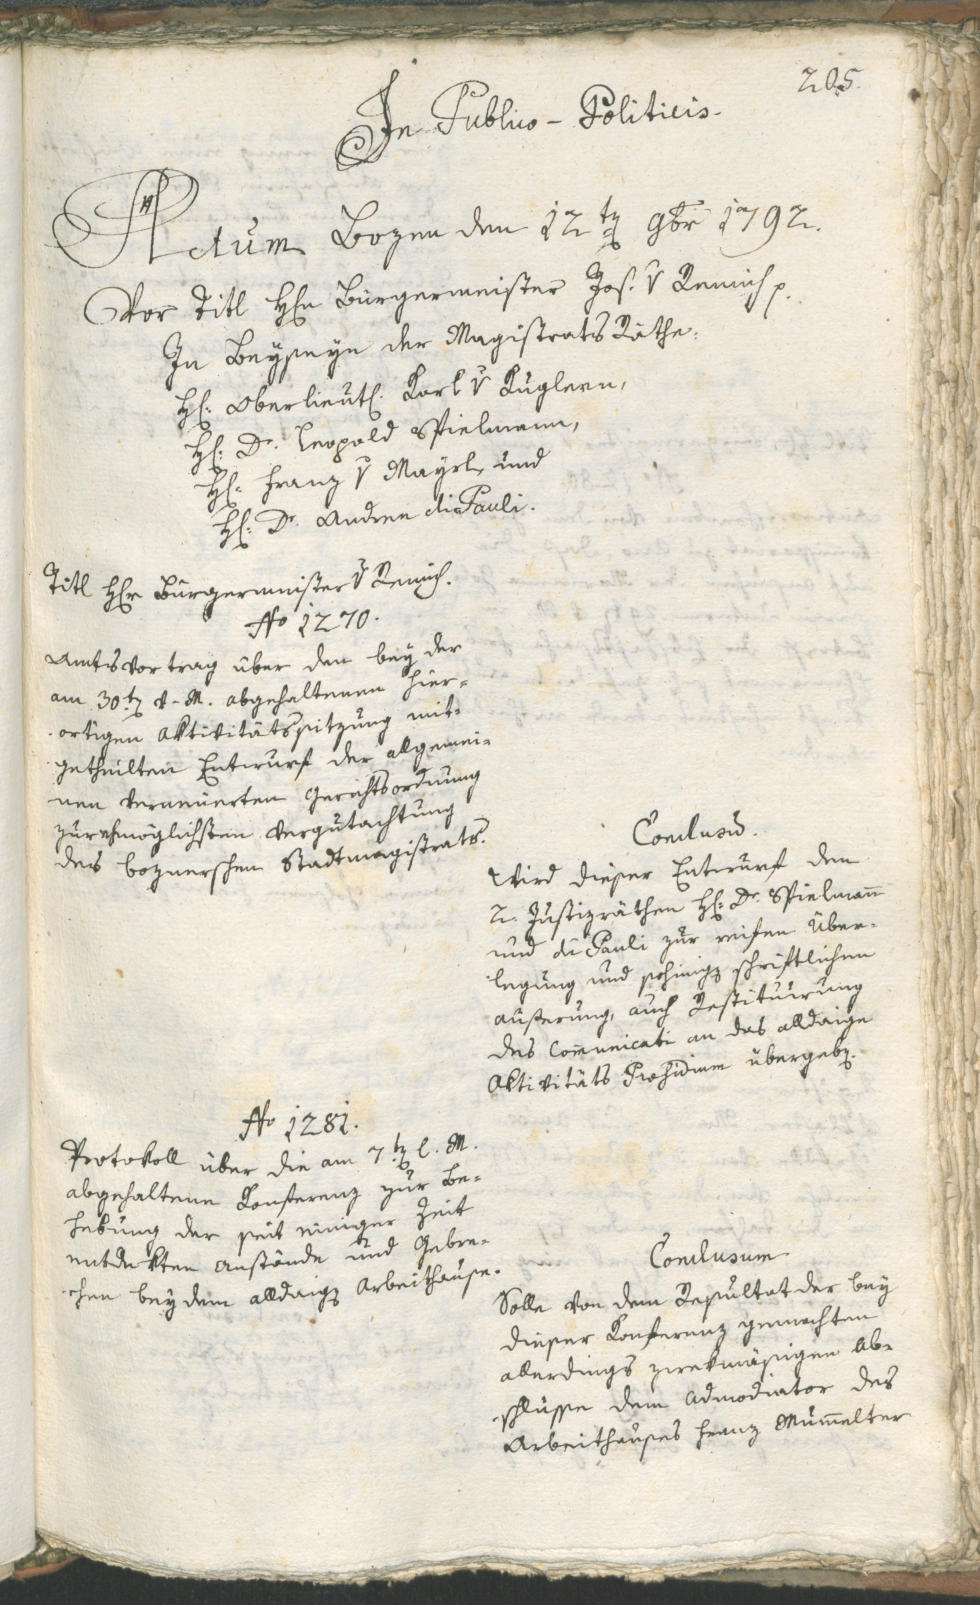 205.
In Publico-Politicis.
Actum Bozen den 12tẽ 9br 1792.
Vor Titl Hħn Bürgermeister Jos. v Remich p.
In Beyseyn der Magistrats Räthe.
Hħ: Oberlieutħ. Karl v Kuglern,
Hħ: Dr. Leopold Spielmann,
Hħ: Franz v Mayrl, und
Hħ: Dr. Andree di Pauli.
Titl Hħr Bürgermeister v Remich.
No 1270.
Amtsvortrag über den bey der
am 30tẽ v. M. abgehaltenen hier-
ortigen Aktivitätssitzung mit-
getheilten Entwurf der allgemei-
nen verneuerten Gerichtsordnung
zur ehmöglichsten Vergutachtung
des boznerschen Stadtmagistrats.
Conclusũ.
Wird dieser Entwurf den
2. Justizräthen Hħ: Dr. Spielmañ
und di Pauli zur reifen Über-
legung und sohinigẽ schriftlichen
äußerung, auch Restituirung
des Com̃unicati an das alldaige
Aktivitäts Præsidium übergebẽ.
No 1281.
Protokoll über die am 7tẽ l. M.
abgehaltene Konferenz zur Be-
hebung der seit einiger Zeit
entdekten Anstände und Gebre-
chen bey dem alldaigẽ Arbeithause.
Conclusum
Solle von dem Resultat der bey
dieser Konferenz gemachten
allerdings zwekmäsigen Ab-
schlüsse dem Admodiator des
Arbeithauses Franz Mum̃elter